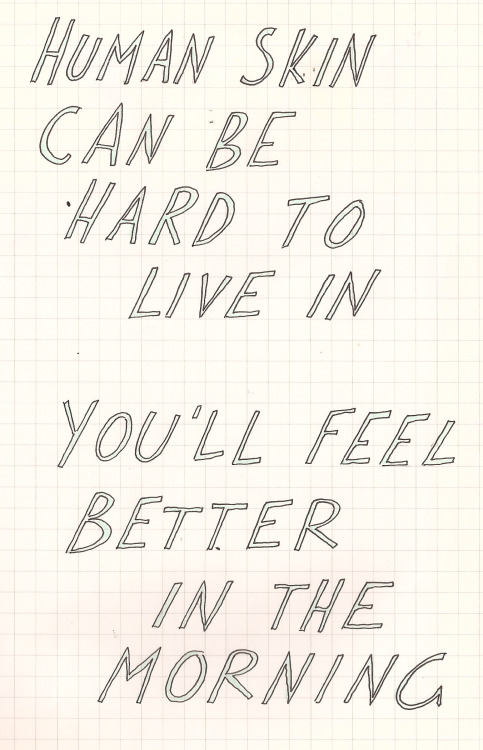 HUMAN SKIN
CAN BE
HARD TO
LIVE IN
YOU'LL FEEL
BETTER
IN THE
MORNING